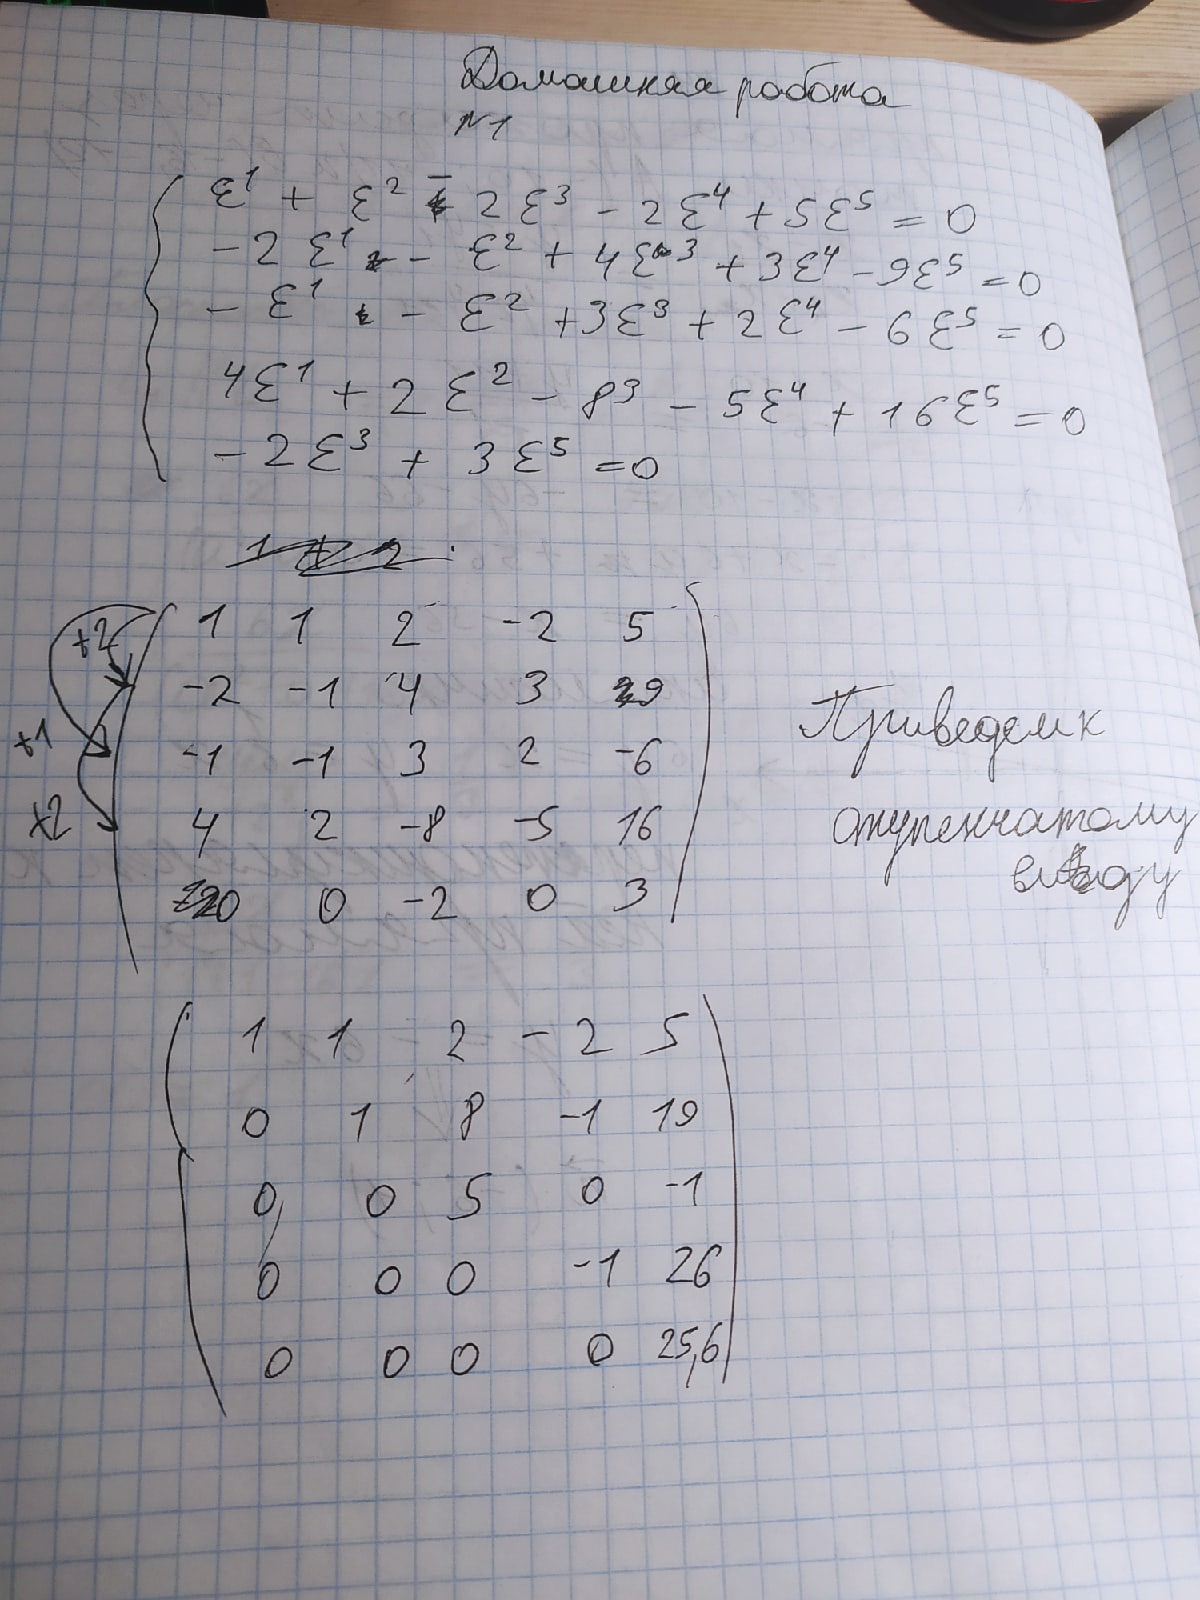 Домашняя работа
№1
ξ¹ + ξ² - 2ξ³ - 2ξ⁴ + 5ξ⁵ = 0
- 2ξ¹ - ξ² + 4ξ³ + 3ξ⁴ - 9ξ⁵ = 0
- ξ¹ - ξ² + 3ξ³ + 2ξ⁴ - 6ξ⁵ = 0
4ξ¹ + 2ξ² - 8³ - 5ξ⁴ + 16ξ⁵ = 0
- 2ξ³ + 3ξ⁵ = 0
1 1 2 -2 5
-2 -1 4 3 9
-1 -1 3 2 -6
4 2 -8 -5 16
0 0 -2 0 3
×2
+1
×2
Приведем к
ступенчатому
виду
1 1 2 -2 5
0 1 8 -1 19
0 0 5 0 -1
0 0 0 -1 26
0 0 0 0 25,6